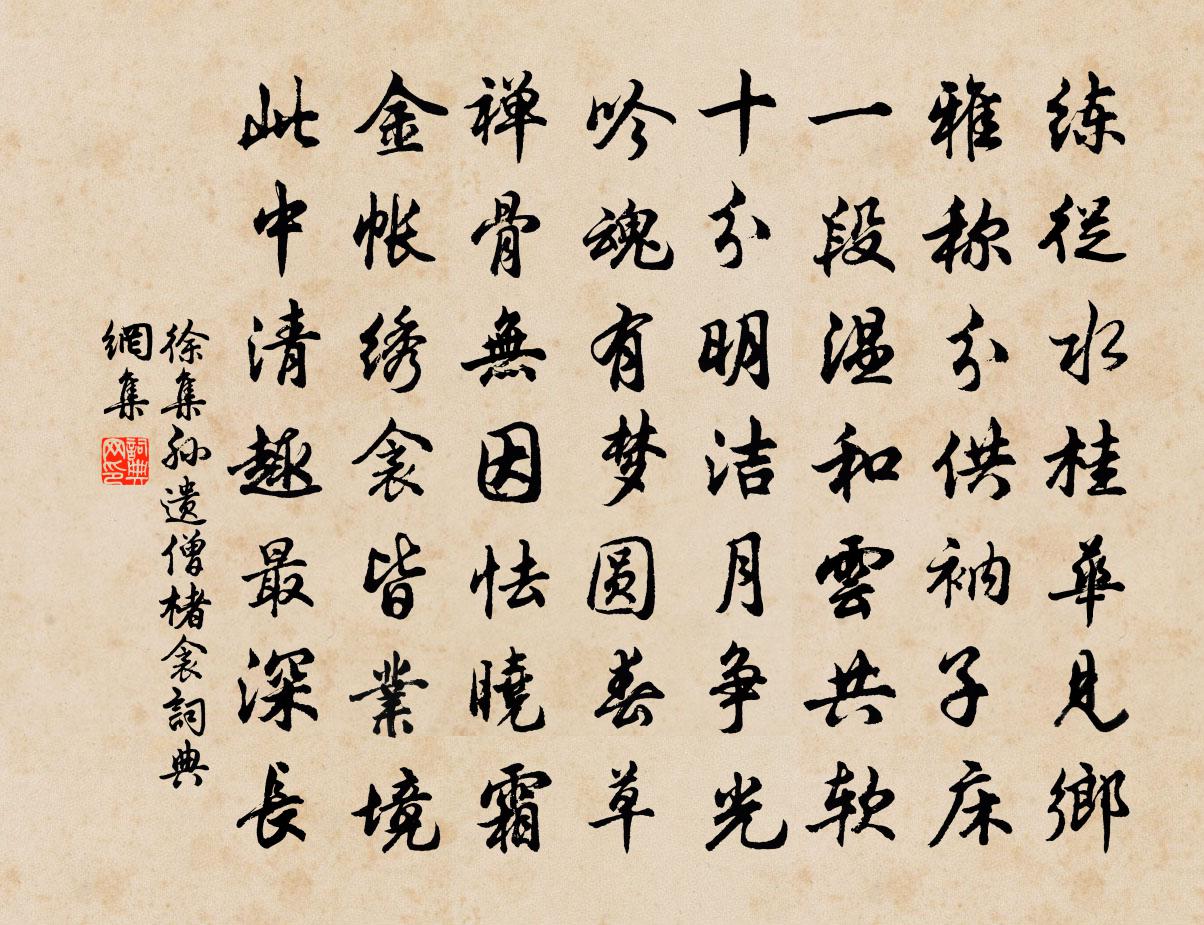 练從水桂華见鄉
雅称分供衲子床
一段温和雲共软
十分明洁月争光
吟魂有梦圆春草
禅骨無因怯曉霜
金帐绣衾皆業境
此中清趣最深長
徐集孙遗僧楮衾詞典
網集
詞典网印